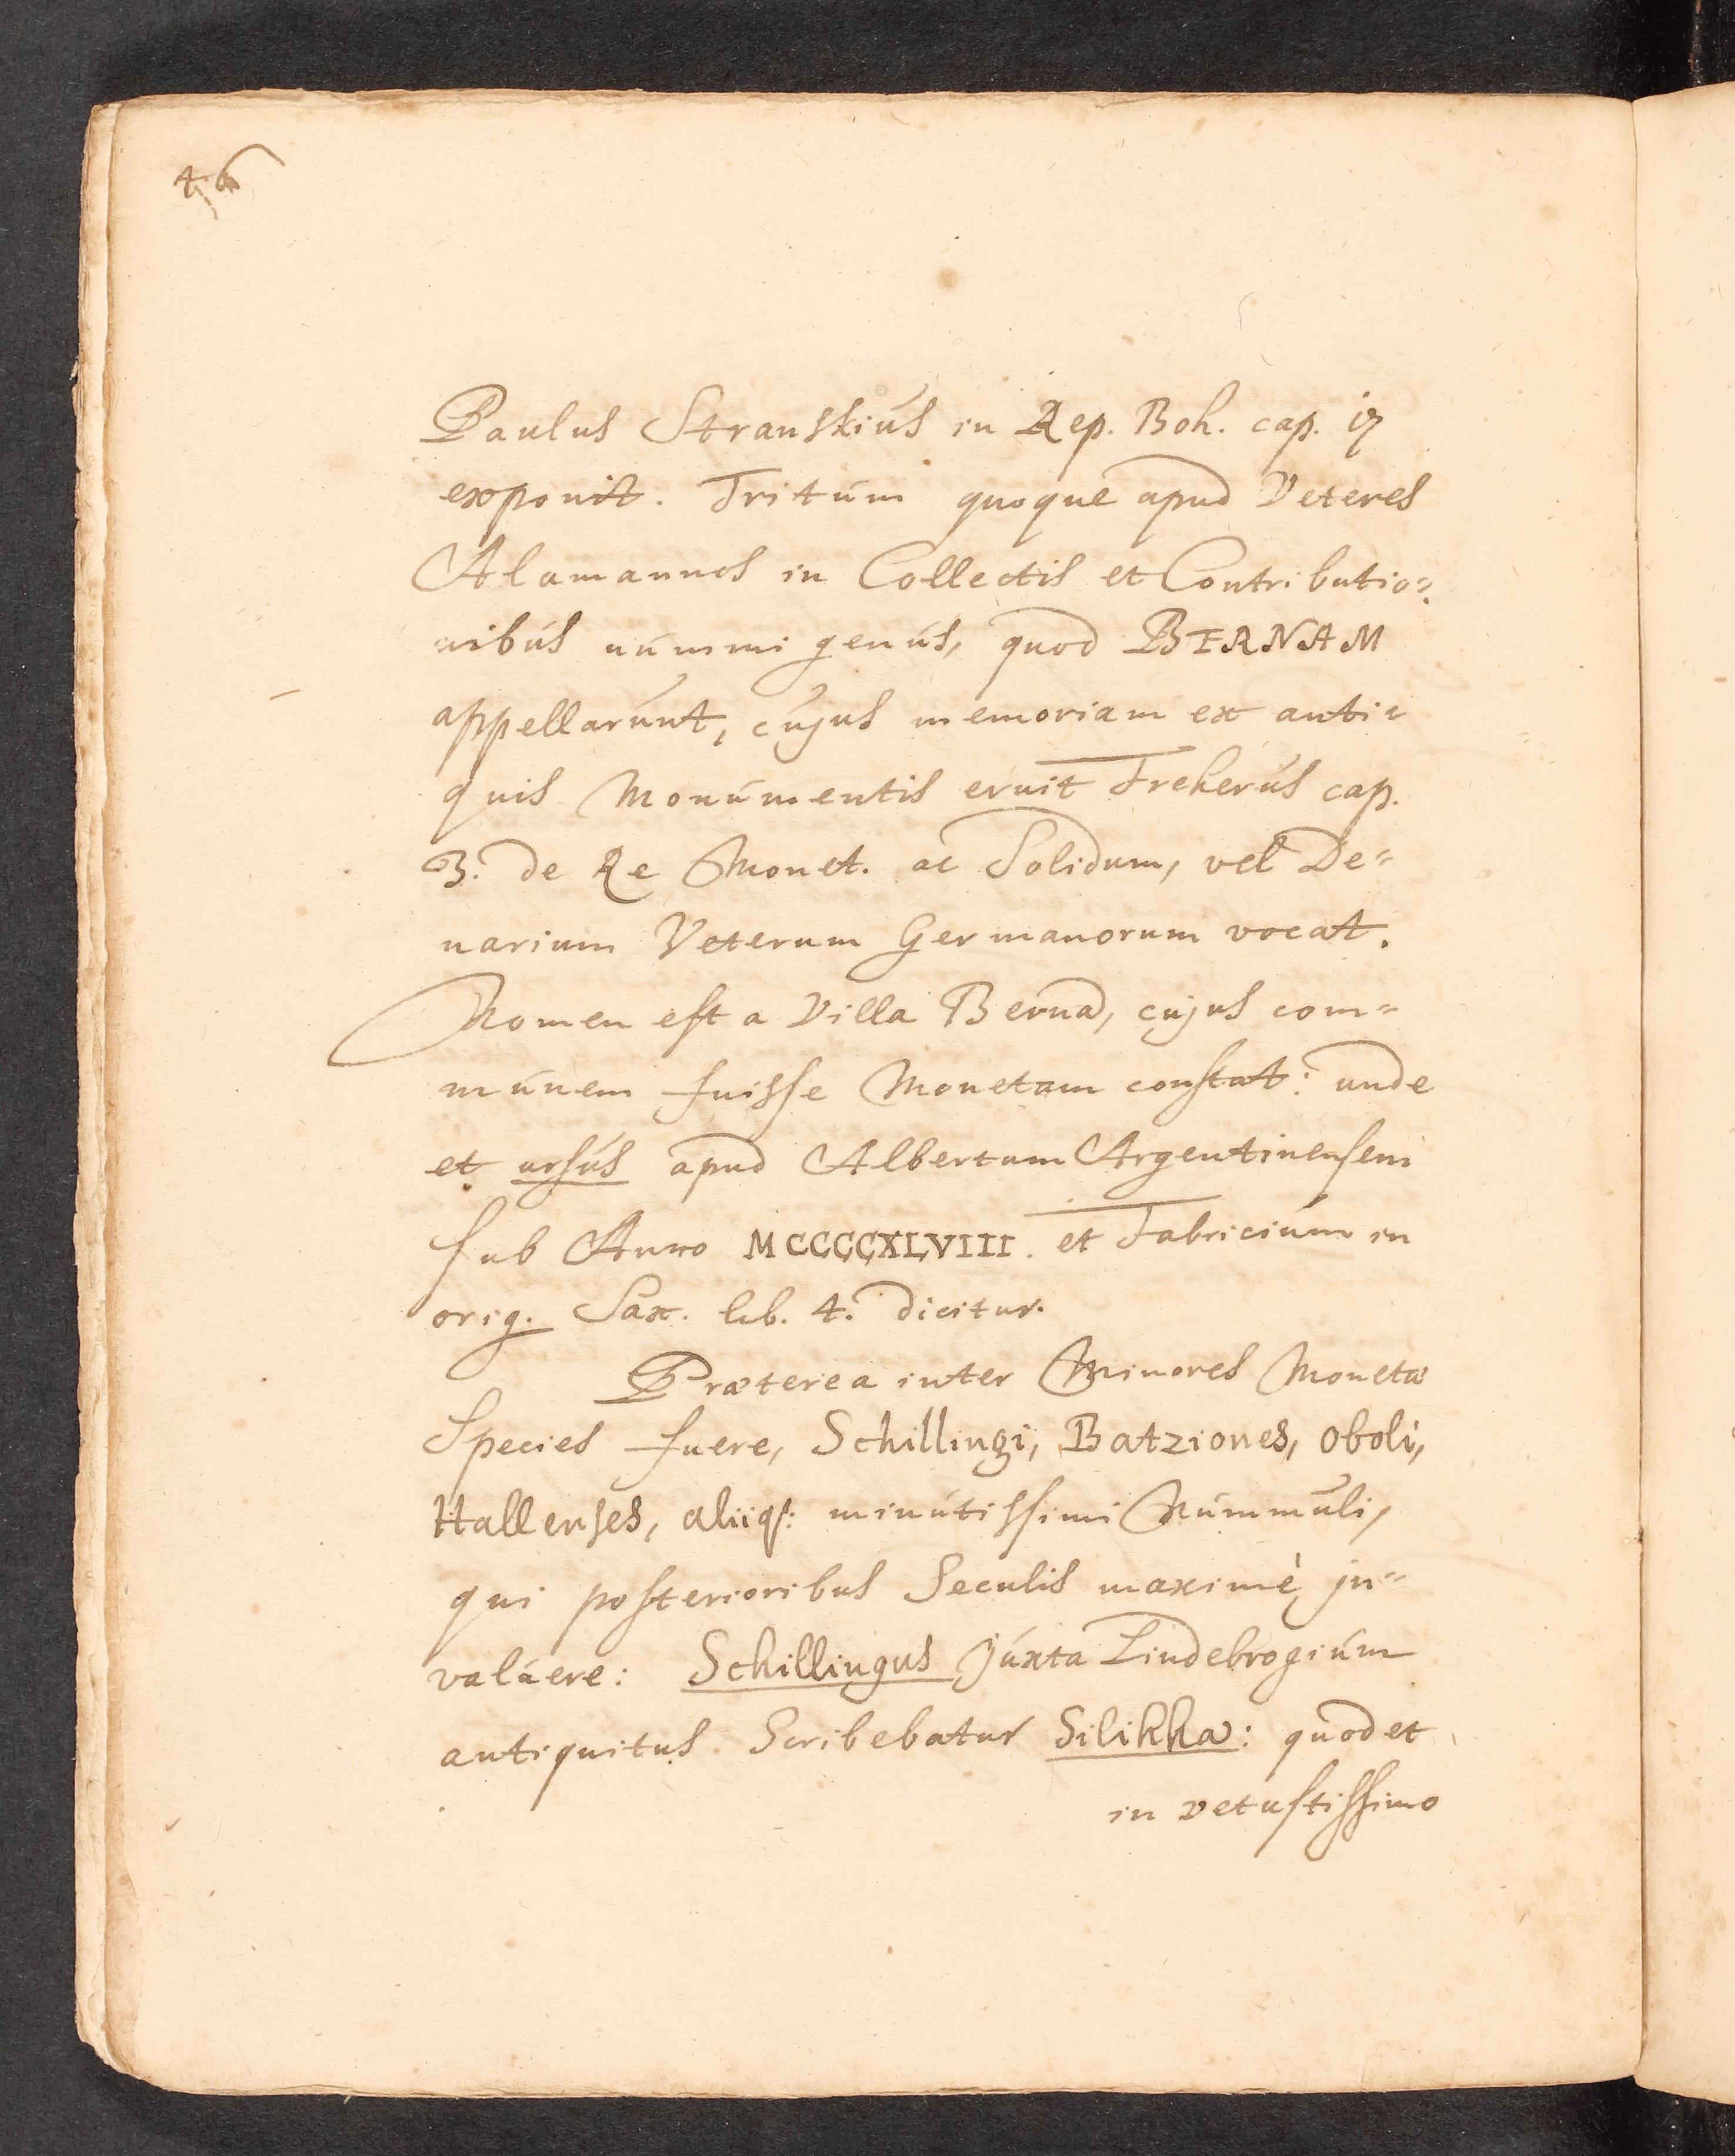 46
Paulus Stranskiús in Rep. Boh. cap. 17
exponit. Tritúm quoque apud Veteres
Alamannos in Collectis et Contributio=
nibús númmi genús, quod BERNAM
appellarúnt, cújus memoriam ex anti=
quis Monúmentis eruit Freherús cap.
3. de Re Monet. ac Solidum, vel De=
narium Veterum Germanorum vocat.
Nomen est a Villa Berna, cujus com=
múnem fuisse Monetam constat: unde
et ursús apud Albertum Argentinensem
sub Anno MCCCCXLVIII. et Fabriciúm in
orig. Sax. lib. 4. dicitur.
Præterea inter Minores Monetæ
Species fuere, Schillingi, Batziones, oboli,
Hallenses, aliiq: minútissimi Númmúli,
qui posterioribus Seculis maximè in=
valúere: Schillingus júxta Lindebrogiúm
antiquitus Scribebatur Silikka: quod et
in vetustissimo